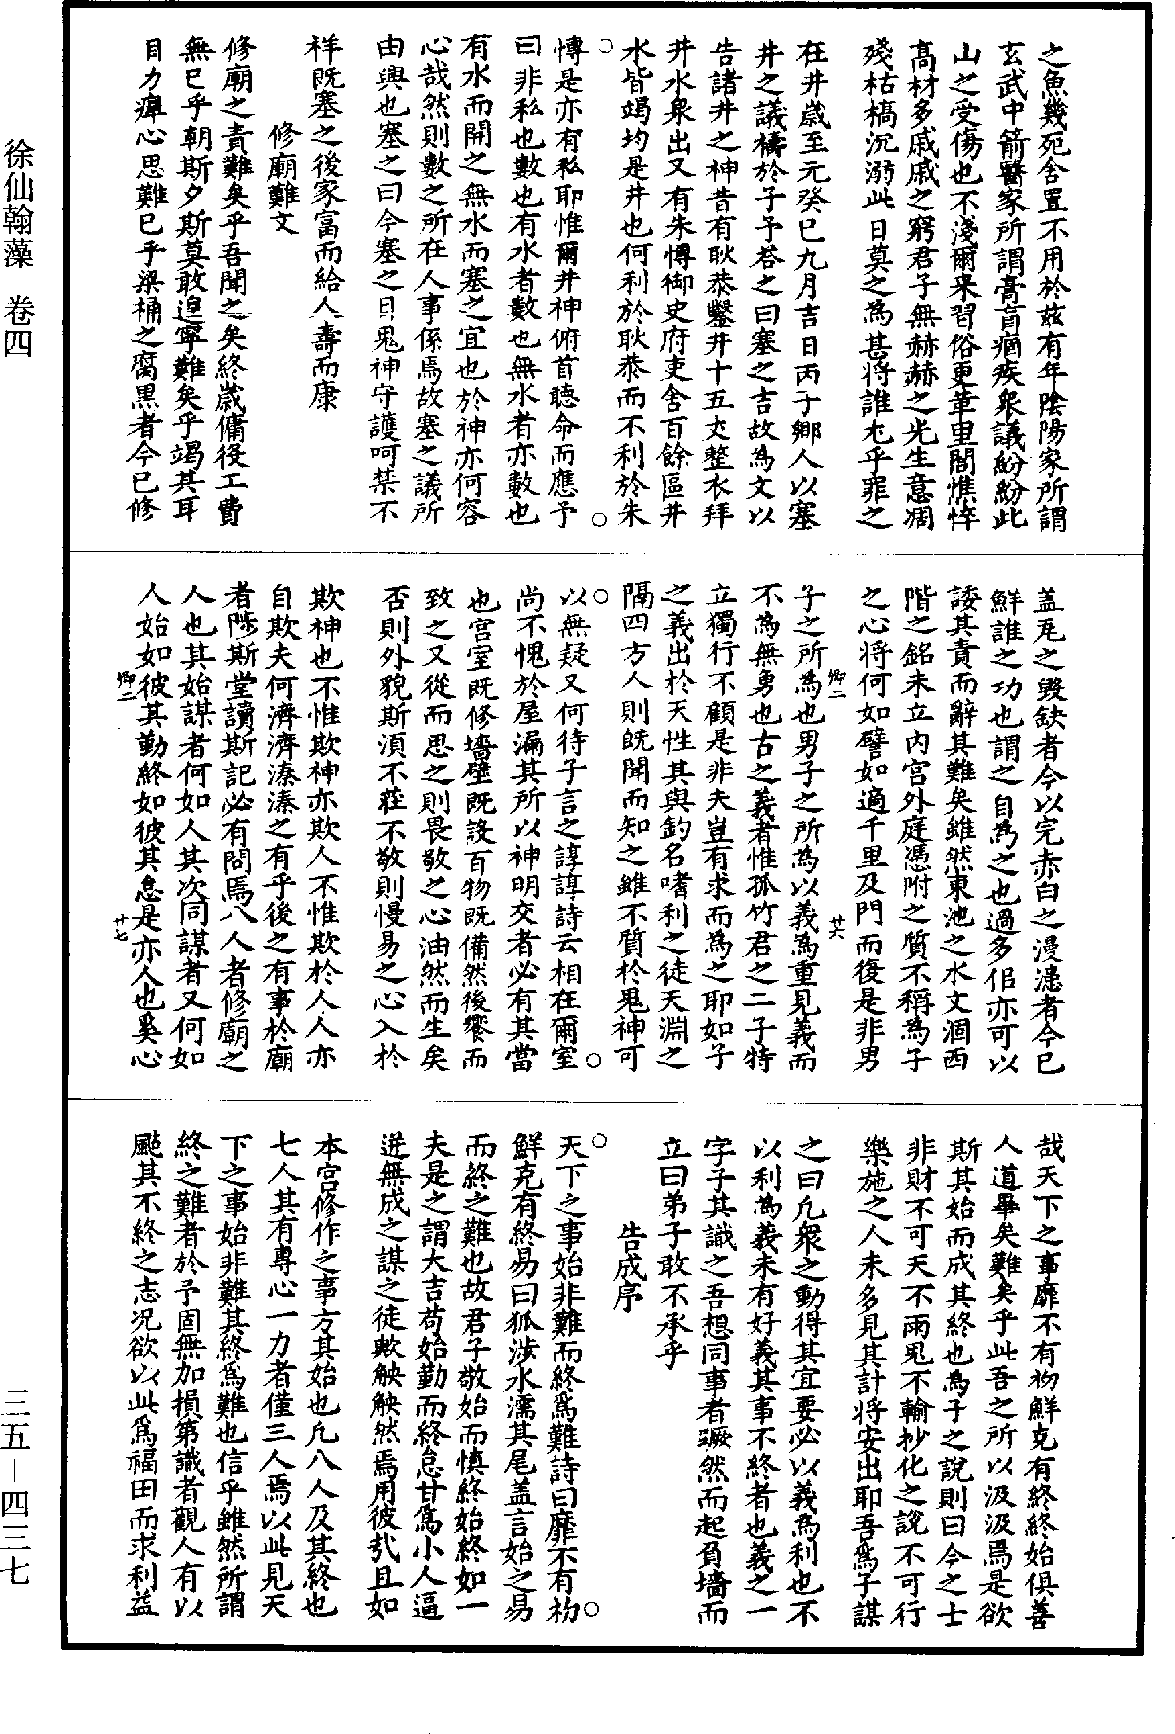 徐仙翰藻 卷四
三五—四三七
之魚幾死舍置不用於玆有年陰陽家所謂
玄武中箭醫家所謂膏肓痼疾衆議紛紛此
山之受傷也不淺爾來習俗更革里閭憔悴
高材多戚戚之窮君子無赫赫之光生意凋
殘枯槁沉溺此日莫之為甚將誰尤乎罪之
在井歲至元癸巳九月吉日丙子鄉人以塞
井之議禱於子予荅之曰塞之吉故為文以
告諸井之神昔有耿恭鑿井十五丈整衣拜
井水泉出又有朱博御史府吏舍百餘區井
水皆竭均是井也何利於耿恭而不利於朱
博是亦有私耶惟爾井神俯首聽命而應予
曰非私也數也有水者數也無水者亦數也
有水而開之無水而塞之宜也於神亦何容
心哉然則數之所在人事係焉故塞之議所
由興也塞之曰今塞之日鬼神守護呵禁不
祥既塞之後家富而給人壽而康
修廟難文
修廟之責難矣乎吾聞之矣終歲傭役工費
無已乎朝斯夕斯莫敢遑寧難矣乎竭其耳
目力瘅心思難已乎梁桷之腐黑者今已修
盖瓦之毀缺者今以完赤白之漫漶者今已
鮮誰之功也謂之自為之也過多佀亦可以
諉其責而辭其難矣雖然東池之水文涸西
階之銘未立内宫外庭憑附之質不稱為子
之心將何如譬如適千里及門而復是非男
子之所為也男子之所為以義為重見義而
不為無勇也古之義者惟孤竹君之二子特
立獨行不顧是非夫豈有求而為之耶如子
之義出於天性其與釣名嗜利之徒天淵之
隔四方人則旣聞而知之雖不質於鬼神可
以無疑又何待子言之諄諄詩云相在爾室
尚不愧於屋漏其所以神明交者必有其當
也宫室既修墻壁既設百物既備然後饗而
致之又從而思之則畏敬之心油然而生矣
否則外貌斯湏不莊不敬則慢易之心入於
欺神也不惟欺神亦欺人不惟欺於人人亦
自欺夫何濟濟溱溱之有乎後之有事於廟
者陟斯堂讀斯記必有問焉八人者修廟之
人也其始謀者何如人其次同謀者又何如
人始如彼其勤終如彼其怠是亦人也奚心
卿二
廿六
卿二
廿七
哉天下之事靡不有初鮮克有終終始俱善
人道畢矣難矣乎此吾之所以汲汲焉是欲
斯其始而成其終也為子之說則曰今之士
非財不可天不雨鬼不輸抄化之說不可行
樂施之人未多見其計將安出耶吾為子謀
之曰凡衆之動得其宜要必以義為利也不
以利為義未有好義其事不終者也義之一
字子其識之吾想同事者蹶然而起負墻而
立曰弟子敢不承乎
告成序
天下之事始非難而終爲難詩曰靡不有初
鮮克有終易曰狐涉水濡其尾盖言始之易
而終之難也故君子敬始而慎終始終如一
夫是之謂大吉苟始勤而終怠甘爲小人逼
迸無成之謀之徒欶觖觖然焉用彼㢤且如
本宫修作之事方其始也凡八人及其終也
七人其有專心一力者僅三人焉以此見天
下之事始非難其終爲難也信乎雖然所謂
終之難者於予固無加損第識者觀人有以
颭其不終之志况欲以此爲福田而求利益